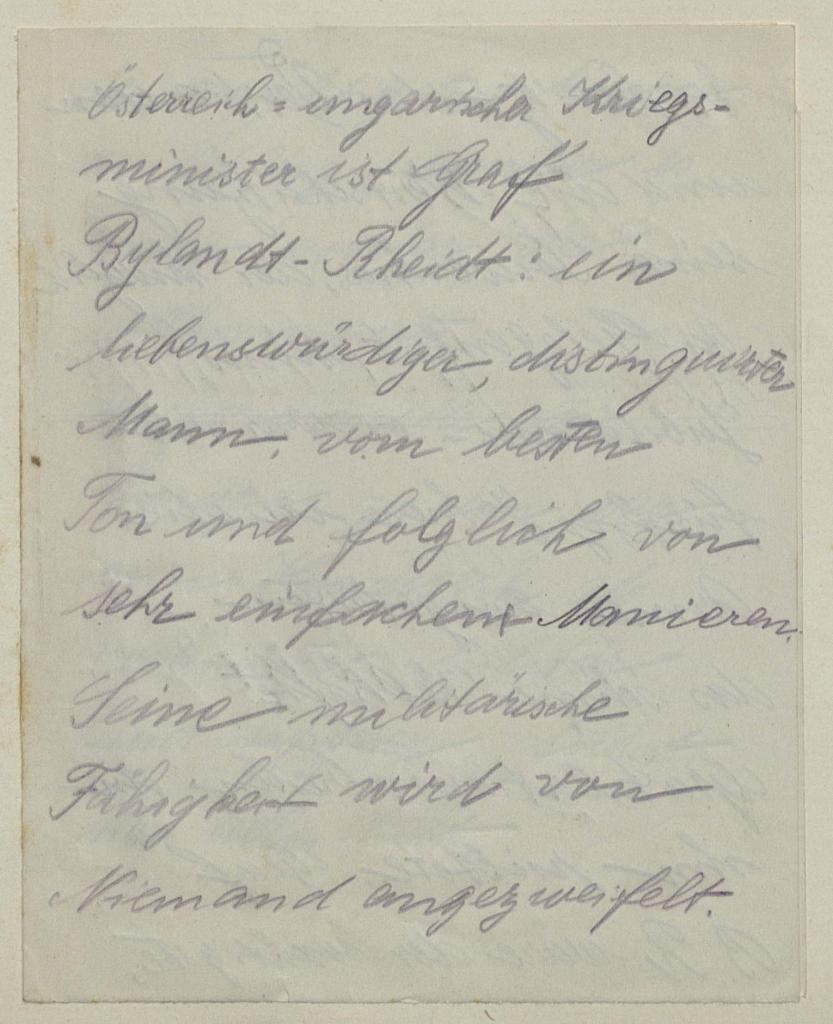 Österreich=ungarischer Kriegs-
minister ist Graf
Bylandt-Rheidt: ein
liebenswürdiger, distinguirter
Mann, vom besten
Ton und folglich von
sehr einfachen Manieren.
Seine militärische
Fähigkeit wird von
Niemand angezweifelt.